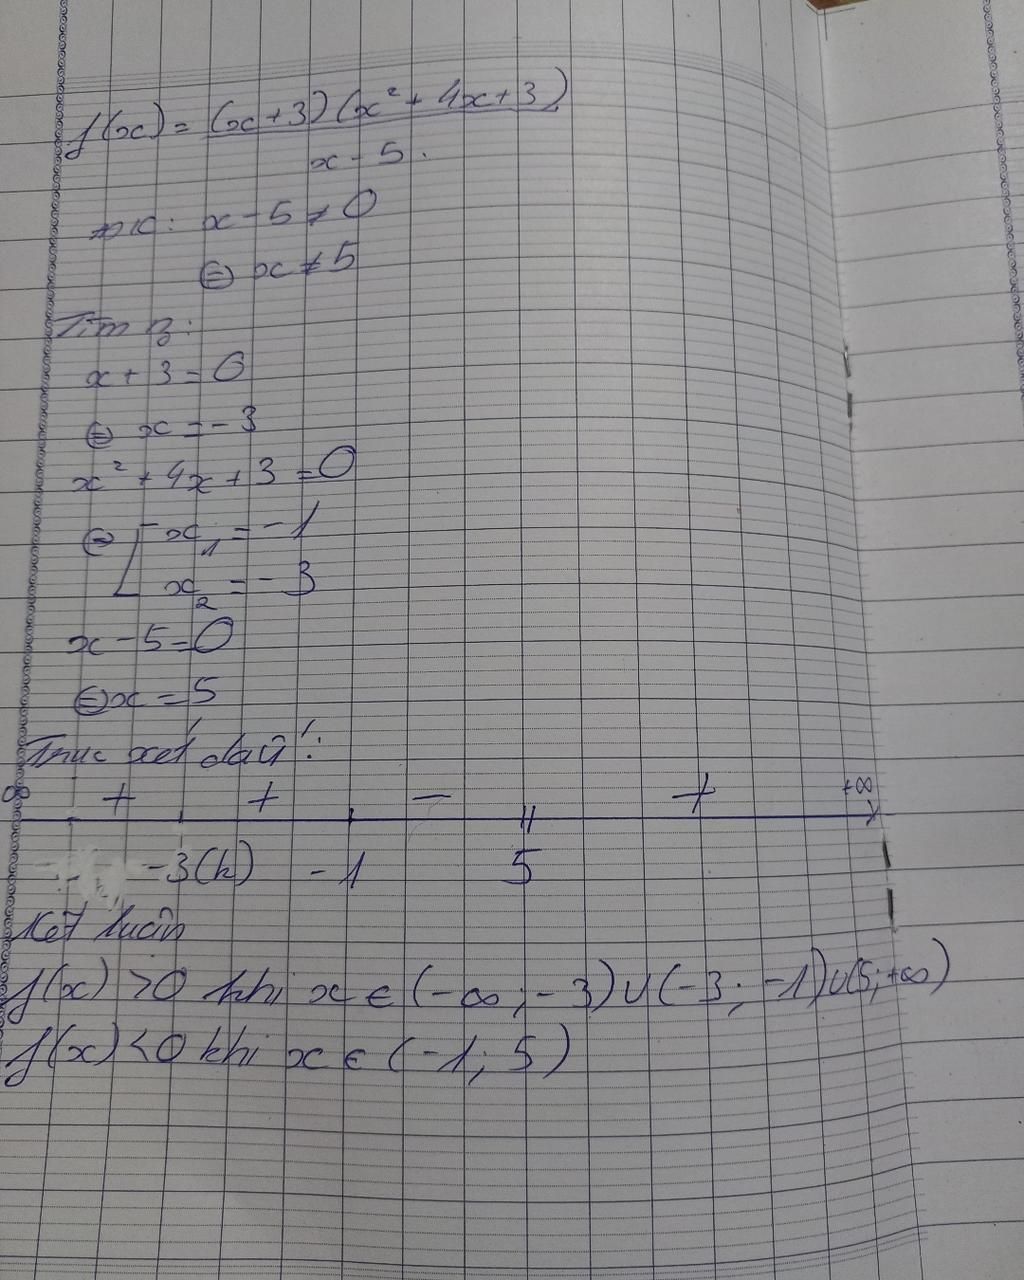 f(x) = (x+3)(x² + 4x+3)
x - 5.
ĐK: x - 5 ≠ 0
⇔ x ≠ 5
Tìm n:
x + 3 = 0
⇔ x = - 3
x² + 4x + 3 = 0
⇔ [ x₁ = - 1
x₂ = - 3
x - 5 = 0
⇔ x = 5
Trục xét dấu:
∞ + + - + +∞
-3(k) -1 5
Kết luận
f(x) > 0 khi x ∈ (-∞; -3) ∪ (-3; -1) ∪ (5; +∞)
f(x) < 0 khi x ∈ (-1; 5)